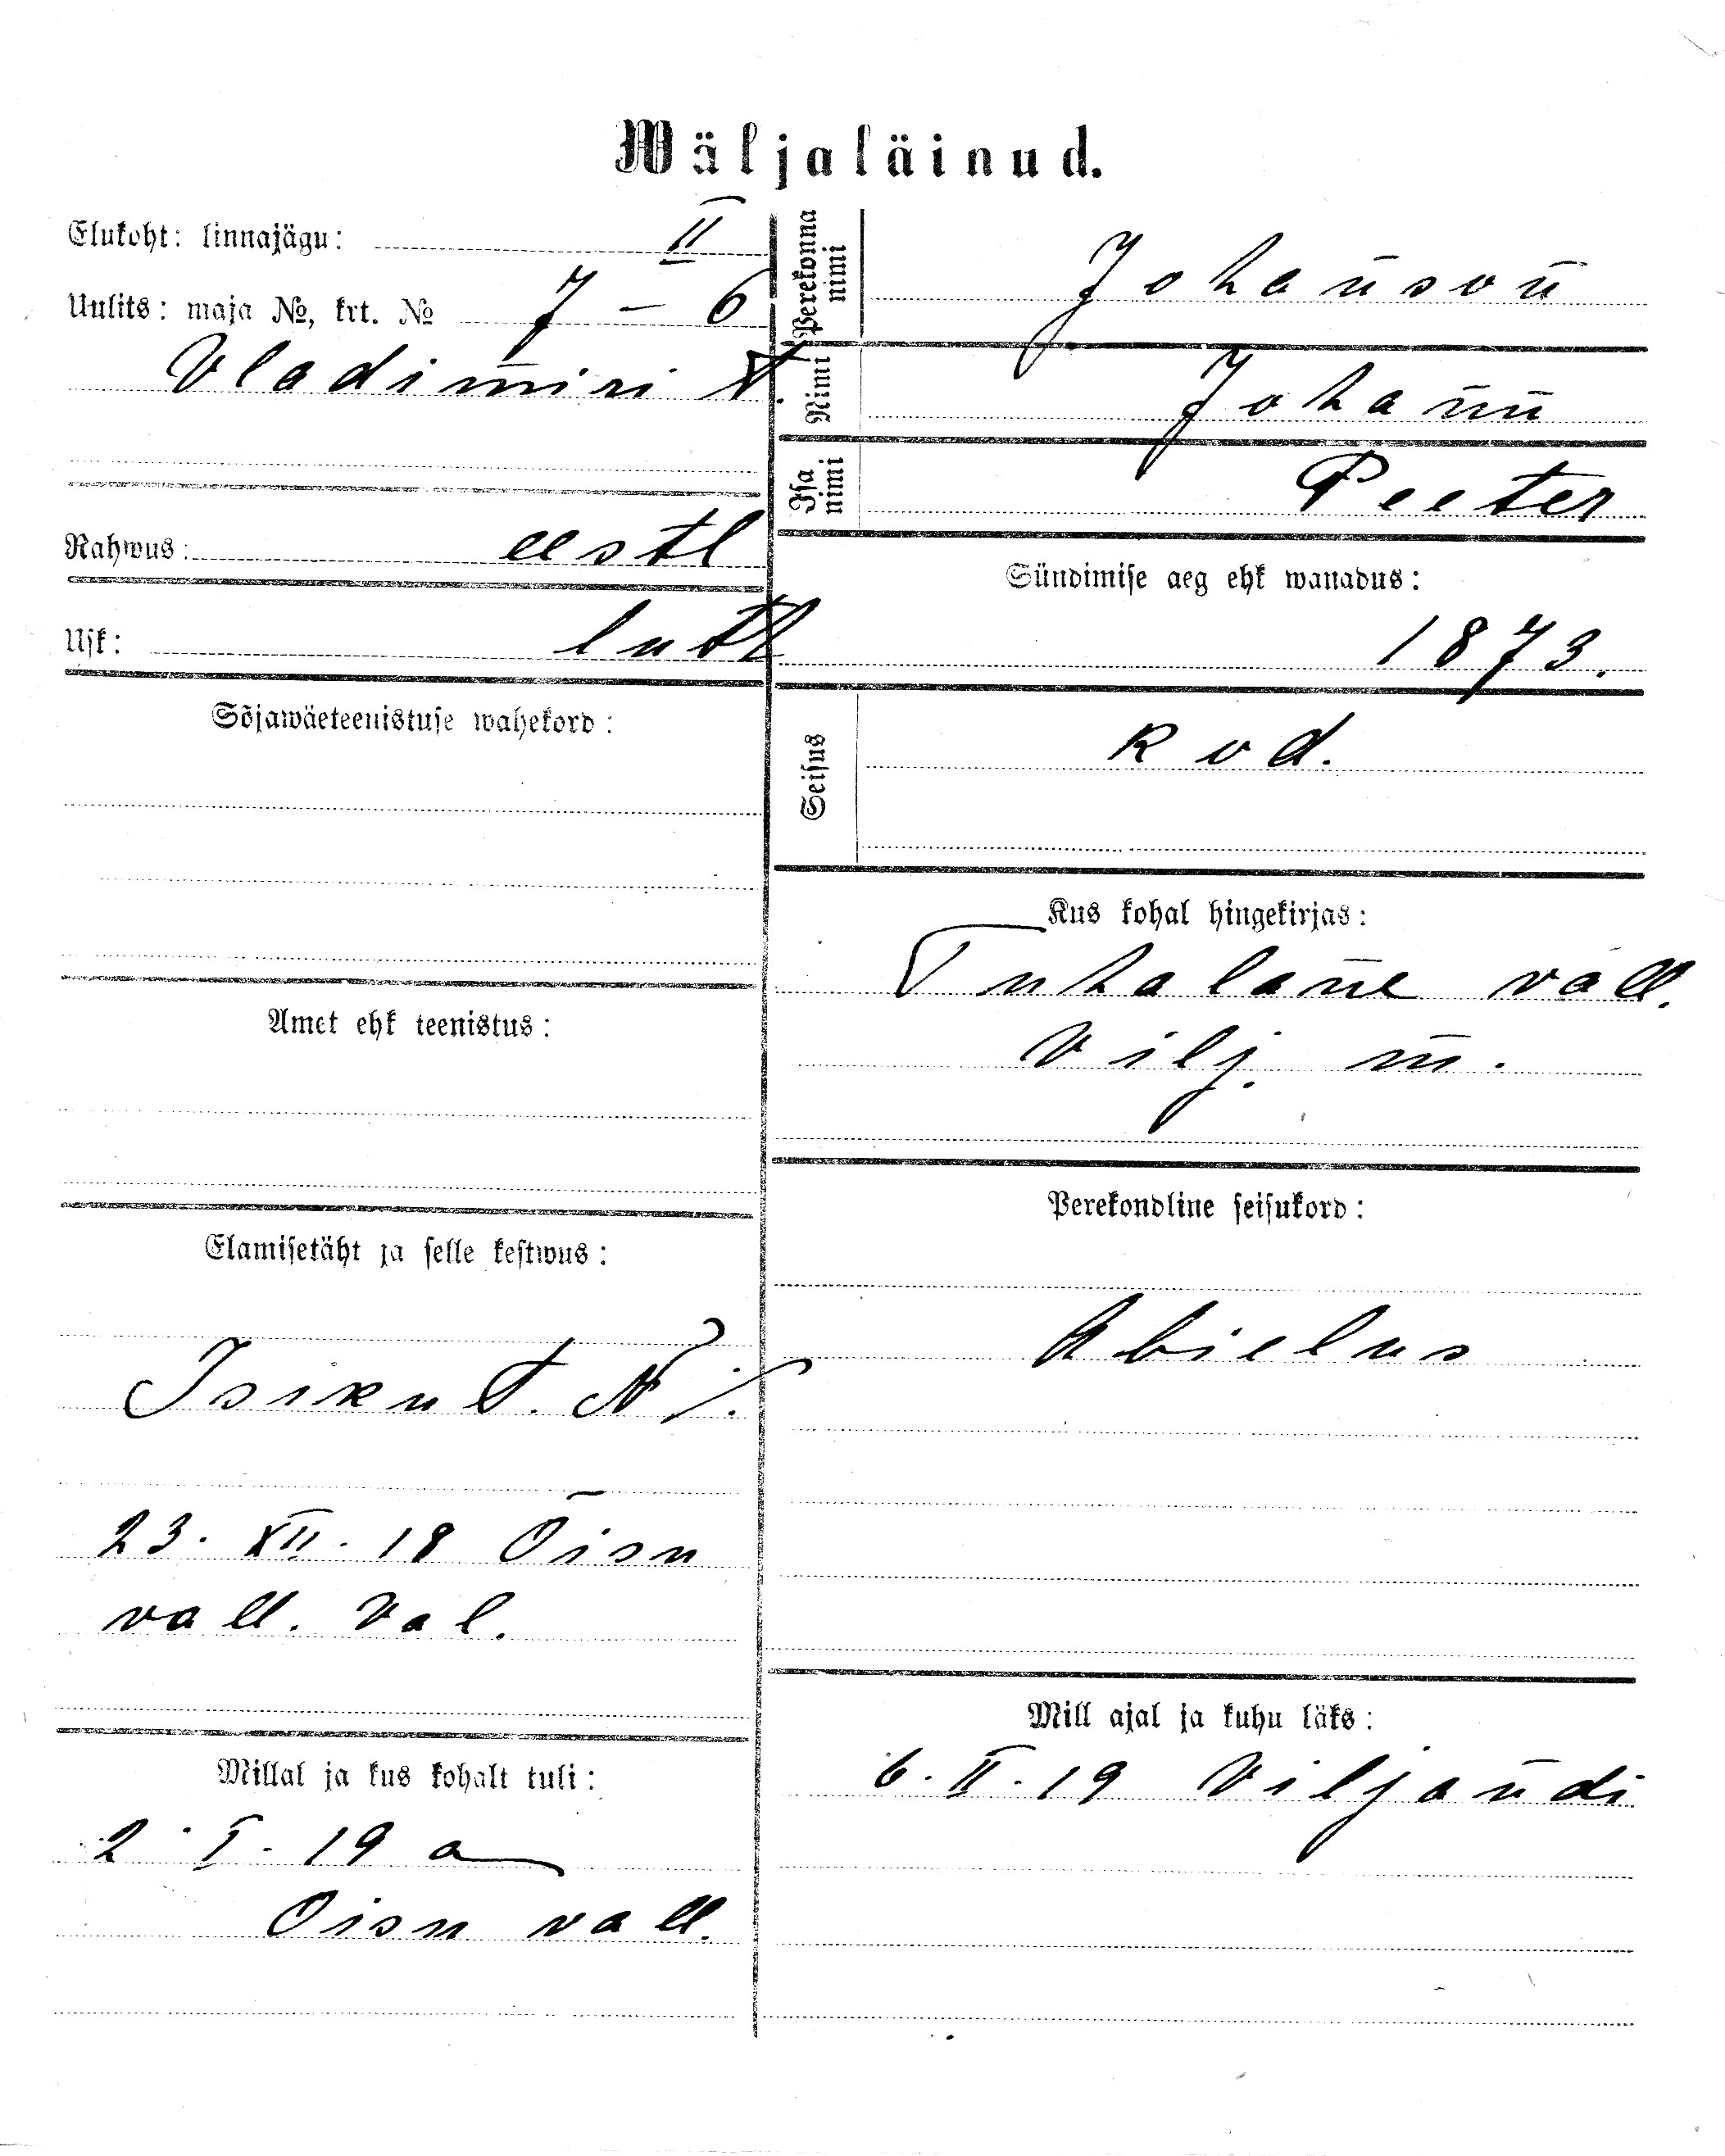 Wäljaläinud.
Elukoht: linnajägu: II
Uulits: maja №, krt. № 7 – 6
Vladimiri t.
Rahwus: eestl
Usk: luth
Sõjawäeteenistuse wahekord:
Amet ehk teenistus:
Elamisetäht ja selle kestwus:
Isiku t. №
23. XII. 18 Õisu
vall. val.
Millal ja kus kohalt tuli:
2. I. 19 a
Oisu vall.
Perekonna nimi Johanson
Nimi Johann
Isa nimi Peeter
Sündimise aeg ehk wanadus:
1873.
Seisus kod.
Kus kohal hingekirjas:
Tuhalane vall.
Vilj. m.
Perekondline seisukord:
Abielus
Mill ajal ja kuhu läks:
6. II. 19 Viljandi